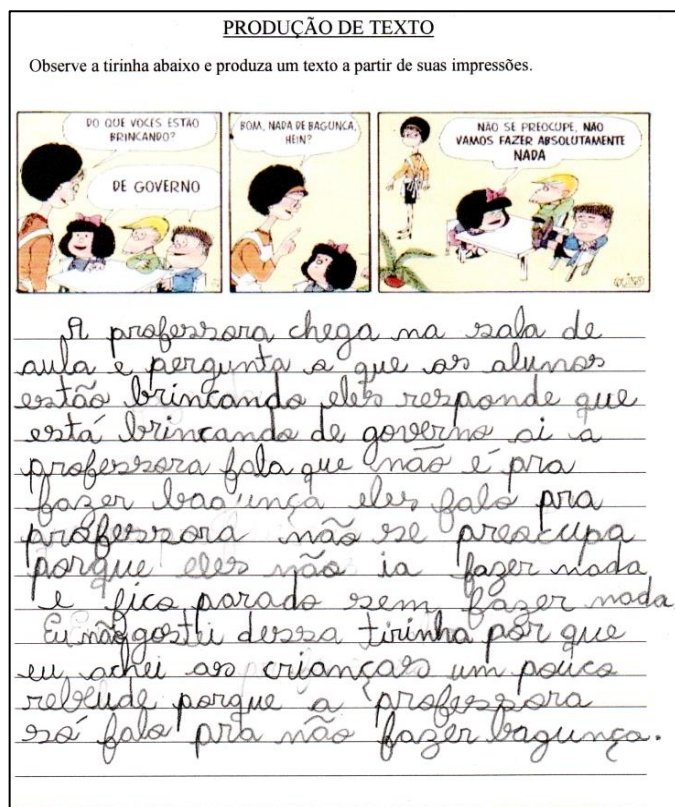 PRODUÇÃO DE TEXTO
Observe a tirinha abaixo e produza um texto a partir de suas impressões.
DO QUE VOCES ESTÃO
BRINCANDO?
DE GOVERNO
BOM, NADA DE BAGUNÇA,
HEIN?
NÃO SE PREOCUPE, NÃO
VAMOS FAZER ABSOLUTAMENTE
NADA
QUINO
A professora chega na sala de
aula e pergunta o que os alunos
estão brincando eles responde que
está brincando de governo ai a
professora fala que não é pra
fazer bagunça eles falo pra
professora não se preocupa
porque eles não ia fazer nada
e fico parado sem fazer nada.
Eu não gostei dessa tirinha por que
eu achei as crianças um pouco
rebeude porque a professora
só falo pra não fazer bagunça.